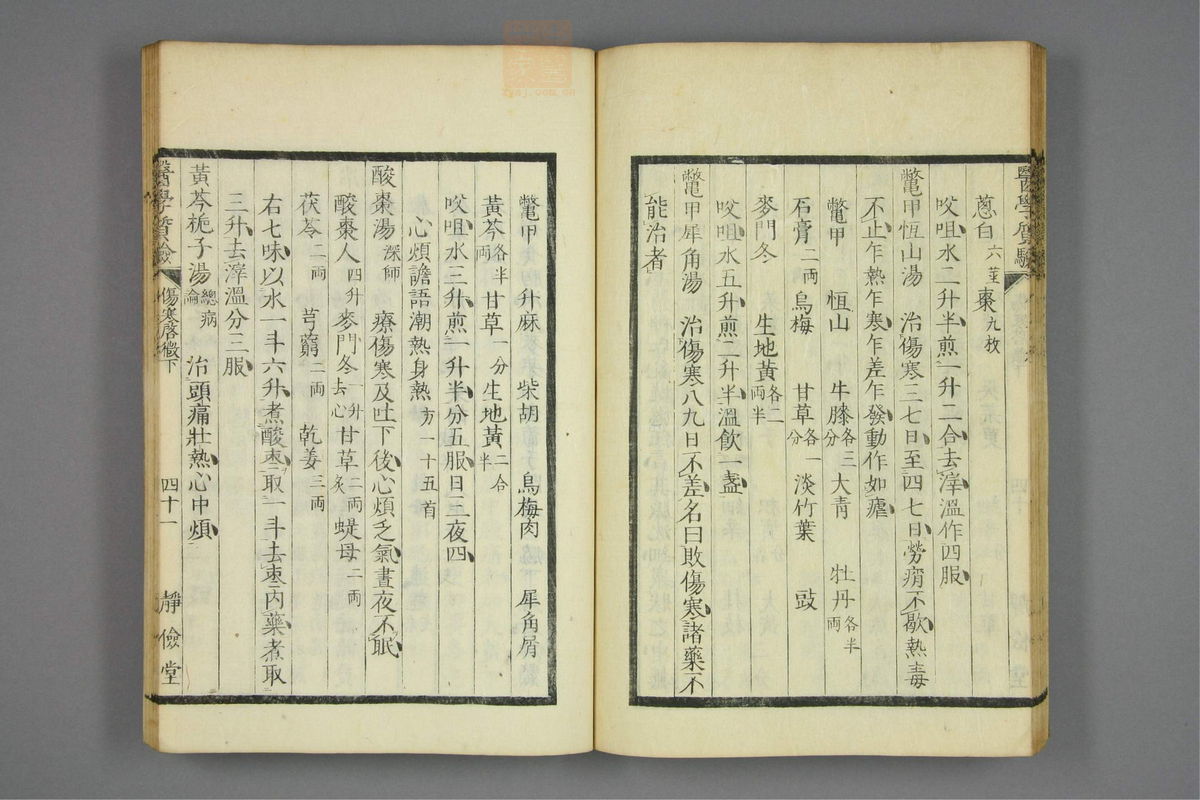 醫學質驗
蔥白六莖棗九枚
㕮咀水二升半煎一升二合去滓溫作四服
鼈甲恆山湯 治傷寒三七日至四七日勞癎不歇熱毒
不止乍熱乍寒乍差乍發動作如瘧
鼈甲 恆山 牛膝各三分 大青 牡丹各半兩
石膏二兩 烏梅 甘草各一分 淡竹葉 豉
麥門冬 生地黃各二兩半
㕮咀水五升煎二升半溫飲一盞
鼈甲犀角湯 治傷寒八九日不差名曰敗傷寒諸藥不
能治者
鼈甲 升麻 柴胡 烏梅肉 犀角屑
黃芩各半兩 甘草一分 生地黃二合半
㕮咀水三升煎一升半分五服日三夜四
心煩譫語潮熱身熱方一十五首
酸棗湯深師 療傷寒及吐下後心煩乏氣晝夜不眠
酸棗人四升 麥門冬一升去心 甘草二兩炙 蝭母二兩
茯苓二兩 芎藭二兩 乾姜三兩
右七味以水一斗六升煮酸棗取一斗去棗內藥煮取
三升去滓溫分三服
黃芩梔子湯總病論 治頭痛壯熱心中煩
醫學質驗 傷寒啓微下 四十一 靜儉堂